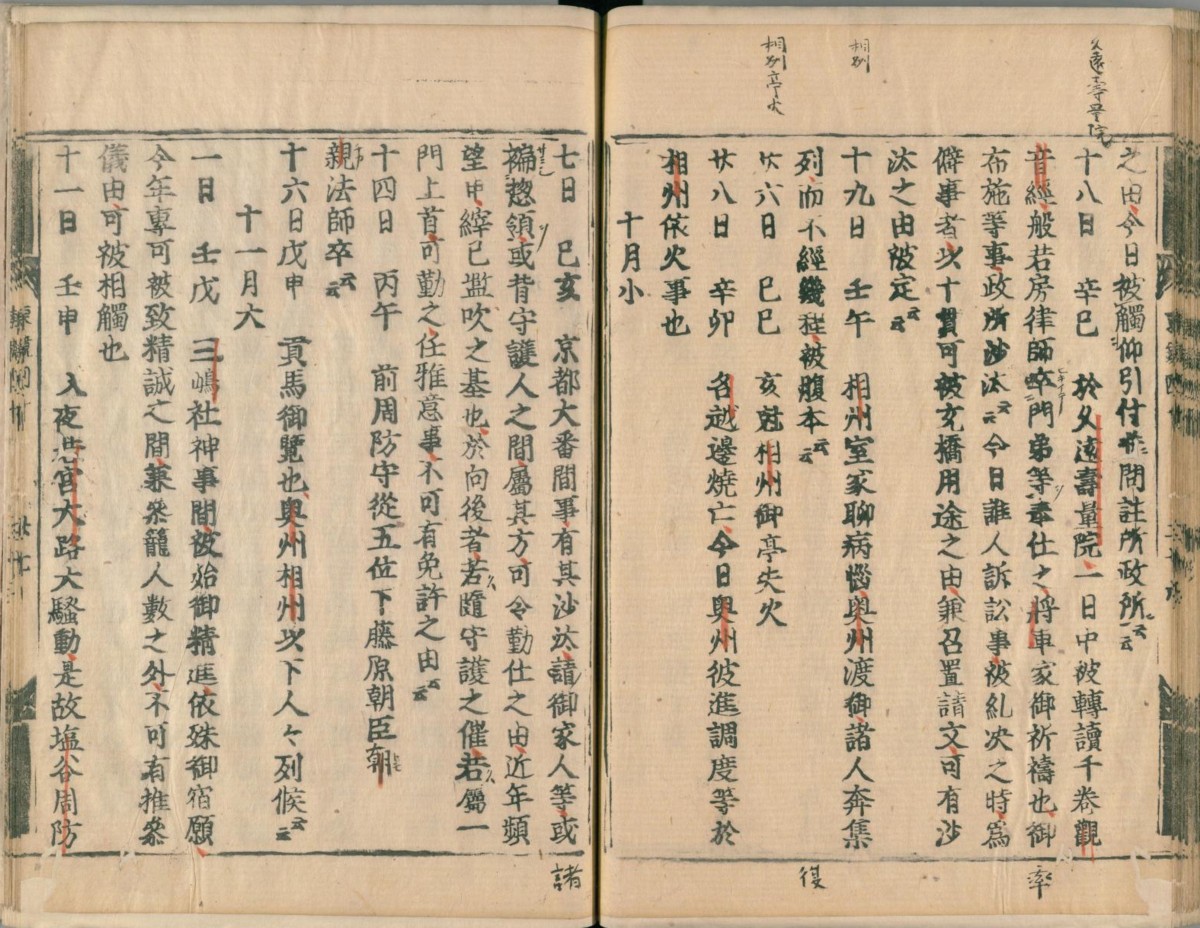 久遠壽量院
相州
相州亭火
之由今日被觸仰引付并問註所政所云云
十八日　辛巳　於久遠壽量院一日中被轉讀千卷觀
音經般若房律師卒門弟等奉仕之將軍家御祈禱也御
布施等事政所沙汰云云今日雜人訴訟事被糺决之時爲
僻事者以十貫可被充橋用途之由兼召置請文可有沙
汰之由被定云云
十九日　壬午　相州室家聊病惱奥州渡御諸人奔集
列而不經幾程被腹本云云
廿六日　己巳　亥尅相州御亭失火
廿八日　辛卯　名越邊燒亡今日奥州彼進調度等於
相州依火事也
十月小
率
復
七日　己亥　京都大番間事有其沙汰請御家人等或
褊惣領或背守護人之間屬其方可令勤仕之由近年頻
望申縡已濫吹之基也於向後者若隨守護之催若屬一
門上首可勤之任雅意事不可有免許之由云云
十四日　丙午　前周防守從五位下藤原朝臣朝
親法師卒云云
十六日戊申　貢馬御覽也奥州相州以下人々列候云云
十一月大
一日　壬戊　三嶋社神事間被始御精進依殊御宿願
今年專可被致精誠之間兼參籠人數之外不可有推參
儀由可被相觸也
十一日　壬申　入夜若宮大路大騷動是故塩谷周防
諸